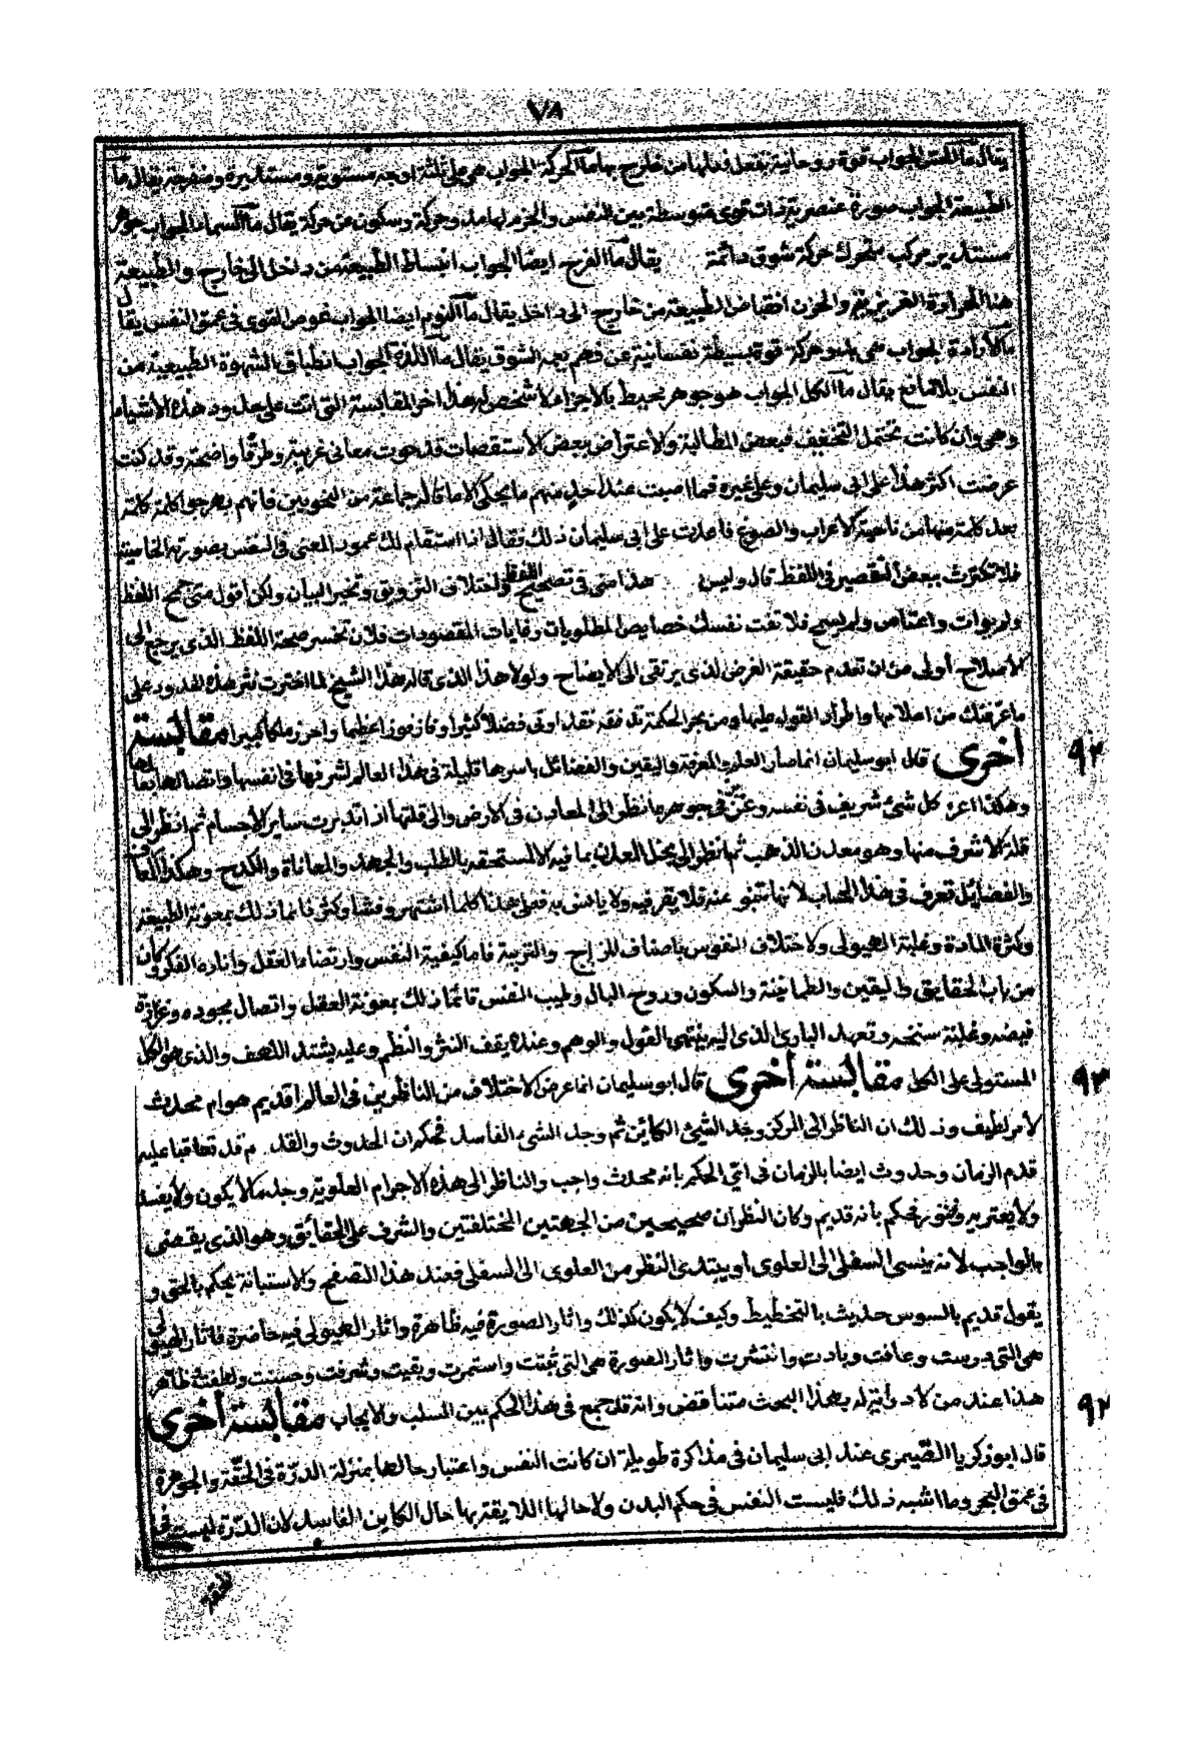 ٧٨
يقال ما الحس الجواب قوة روحانية تفعل فعلها من خارج يقال ما الحركة الجواب هي على ثلثة اوجه مستوية ومستديرة ومنفرجة يقال ما
الطبيعة الجواب صورة عنصرية ذات قوى متوسطة بين النفس والجرم لها بدو حركة وسكون عن حركة يقال ما السماء الجواب جوهر
مستدير مركب متحرك حركة شوق دائمة يقال ما الفرح ايضا الجواب انبساط الطبيعة من داخل الى خارج والطبيعة
هنا الحرارة الغريزية والحزن انقباض الطبيعة من خارج الى داخل يقال ما النوم ايضا الجواب غوص القوى في عمق النفس يقال
ما الارادة الجواب هي بدو حركة قوة بسيطة نفسانية عن فهم يجد الشوق يقال ما اللذة الجواب انطباق الشهوة الطبيعية من
النفس بلا مانع يقال ما الكل الجواب هو جوهر يحيط بالاجزاء كالشخص هذا اخر المقابسة التي اتت على حدود هذه الاشياء
وهي وان كانت تحتمل التخفيف فبعض المطالبة والاعتراض بعض الاستقصات قد حوت معاني غريبة وطرقا واضحة وقد كنت
عرضت اكثر هذا على ابي سليمان وعلى غيره فما اصبت عند احد منهم ما يحكى الا ما قاله جماعة من النحويين فانهم بهرجوا كلمة كلمة
بعد كلمة منها من ناحية الاعراب والصوغ فاعدت على ابي سليمان ذلك فقال اذا استقام لك عمود المعنى في النفس بصورته الخاصية
فلا تكترث ببعض التقصير في اللفظ قال وليس هذا مني في تصحيح اللفظ واختلاف التزويق وتخير البيان ولكن اقول متى جمح اللفظ
ولم يوات واعتاص ولم يسمح فلا تفت نفسك خصايص المطلوبات وغايات المقصودات فلان تخسر صحة اللفظ الذي يرجع الى
الاصلاح أولى من ان تعدم حقيقة الغرض الذي يرتقى الى الايضاح ولولا هذا الذي قاله هذا الشيخ لما اخترت نثر هذه الحدود على
ما عرفتك من احكامها واطراد القول عليها ومن بحر الحكمة تدفقه فقد اوتي فضلا كثيرا وفاز فوزا عظيما واحرز ملكا كبيرا مقابسة
أخرى قال ابو سليمان انما صار العلم والمعرفة واليقين والفضائل باسرها قليلة في هذا العالم لشرفها في انفسها واتصالها بقا لها
وهكذا اعز كل شيء شريف في نفسه وعز في جوهره انظر الى المعادن في الارض والى قلتها اذا تدبرت ساير الاجسام ثم انظر الى
قلة الاشرف منها وهو معدن الذهب ثم انظر الى بخل المعدن بما فيه الا لمستحقه بالطلب والجهد والمعاناة والكدح وهكذا المعارف
والفضائل تعرف في هذا الحساب لانها تنبو عنه فلا يقر فيه ولا يانس به فعلى هذا كلما اشتهر وفشا وكثر فانما ذلك بمعونة الطبيعة
وكثرة المادة وغلبة الهيولى ولاختلاف النفوس باصناف المزاج والتربة فاما كيفية النفس وارتضاء العقل واناره الفكر وكان
من باب الحقايق واليقين والطمانينة والسكون وروح البال وطيب النفس فانما ذلك بمعونة العقل واتصال بجوده وغزارة
فيضه وغلبة سنخه وتعهد الباري الذي اليه ينتهى القول والوهم وعنده يقف النثر والنظم وعليه يشتد اللهف والذي هو الكل
المستولى على الكل مقابسة أخرى قال ابو سليمان انما عرض الاختلاف من الناظرين في العالم اقديم هو ام محدث
لامر لطيف وذلك ان الناظر الى المركز وجد الشيء الكائن ثم وجد الشيء الفاسد فحكم ان الحدوث والقدم قد تعاقبا عليه
قدم الزمان وحدوث ايضا بالزمان فراى الحكم بانه محدث واجب والناظر الى هذه الاجرام العلوية وجدها لا يكون ولا يفسد
ولا يعتريه فتور فحكم بانه قديم وكان النظران صحيحين من الجهتين المختلفتين والشرف على الحقايق وهو الذي يقضى
بالواجب لانه ينسى السفلى الى العلوي او يبتدى النظر من العلوى الى السفلى فعند هذا التصفح والاستبانة يحكم بالحق و
يقول قديم بالسوس حديث بالتخطيط وكيف لا يكون كذلك واثار الصورة فيه ظاهرة واثار الهيولى فيه حاضرة فاثار الهيولى
هي التي درست وعافت وبادت وانتشرت واثار الصورة هي التي ثبتت واستمرت وبقيت وشرفت وحسنت ولطفت ظاهر
هذا عند من لا دراية له بهذا البحث متناقض وانه قد جمع في هذا الحكم بين السلب والايجاب مقابسة أخرى
قال ابو زكريا الصيمرى عند ابي سليمان في مذاكرة طويلة ان كانت النفس واعتبار حالها بمنزلة الدرة في الحقة والجوهرة
في عمق البحر وما اشبه ذلك فليست النفس في حكم البدن ولا حالها اللايقة بها حال الكاين الفاسد لان الدرة ليست
٩٢
٩٣
٩٤